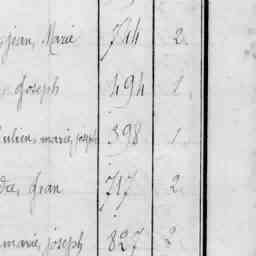 jean, Marie 744 2
Joseph 494 1
ulien, marie, joseph 398 1
Jean 717 2
marie, joseph 827 2